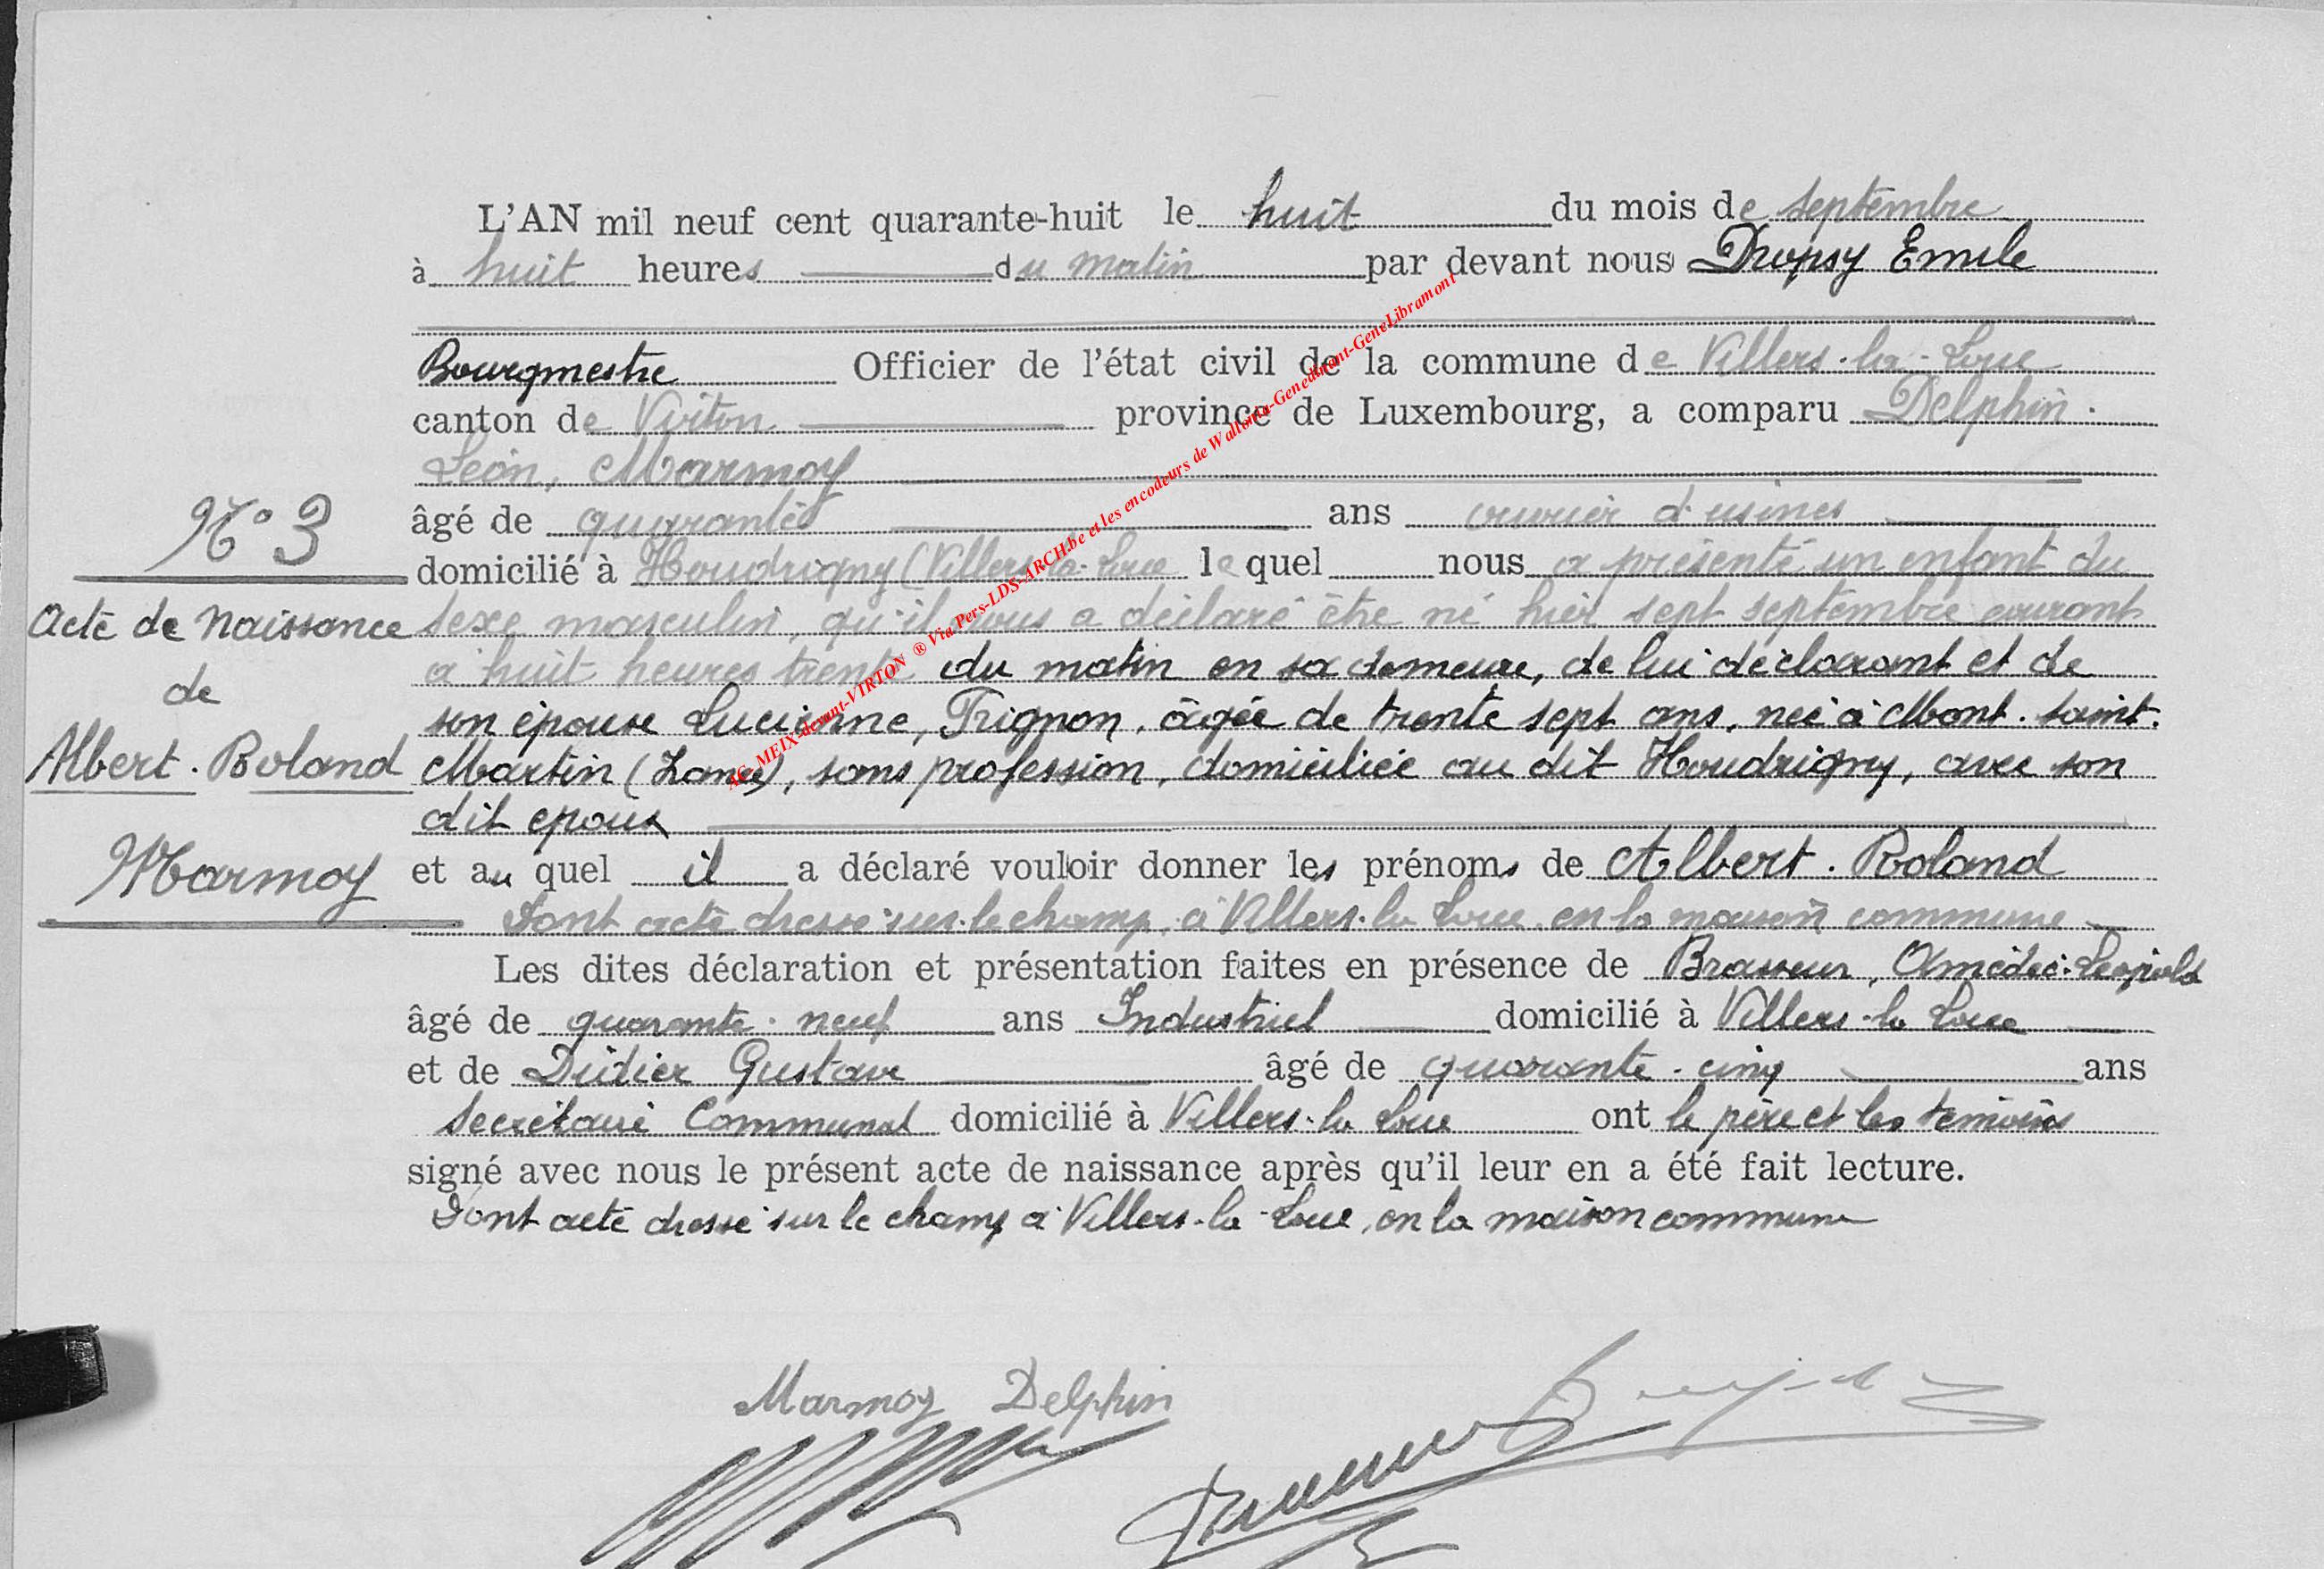 L'AN mil neuf cent quarante-huit le huit du mois de septembre
à huit heures du matin par devant nous Dropsy Emile
Bourgmestre Officier de l'état civil de la commune de Villers-la-Loue
canton de Virton province de Luxembourg, a comparu Delphin-
Léon, Marmoy
âgé de quarante ans ouvrier d'usines
domicilié à Houdrigny (Villers-la-Loue lequel nous a présenté un enfant du
sexe masculin, qu'il nous a déclaré être né hier sept septembre courant
à huit heures trente du matin en sa demeure, de lui déclarant et de
son épouse Lucienne, Trignon, âgée de trente sept ans, née à Mont-Saint-
Martin (), sans profession, domiciliée au dit Houdrigny, avec son
dit epoux
et au quel il a déclaré vouloir donner les prénoms de Albert-Roland
Dont acte dressé sur-le champ, à Villers-la Loue, en la maison commune
Les dites déclaration et présentation faites en présence de Brasseur, Amédée-Léopold
âgé de quarante-neuf ans Industriel domicilié à Villers-la Loue
et de Didier Gustave âgé de quarante-cinq ans
Secrétaire Communal domicilié à Villers-la Loue ont le père et les témoins
signé avec nous le présent acte de naissance après qu'il leur en a été fait lecture.
Dont acte dressé sur le champ à Villers-la-Loue, en la maison commune
N° 3
Acte de Naissance
de
Albert-Roland
Marmoy
Marmoy Delphin
AC MEIX-devant-VIRTON ® Via Pers-LDS-ARCH.be et les encodeurs de Wallonia-Genedinant-GeneLibramont